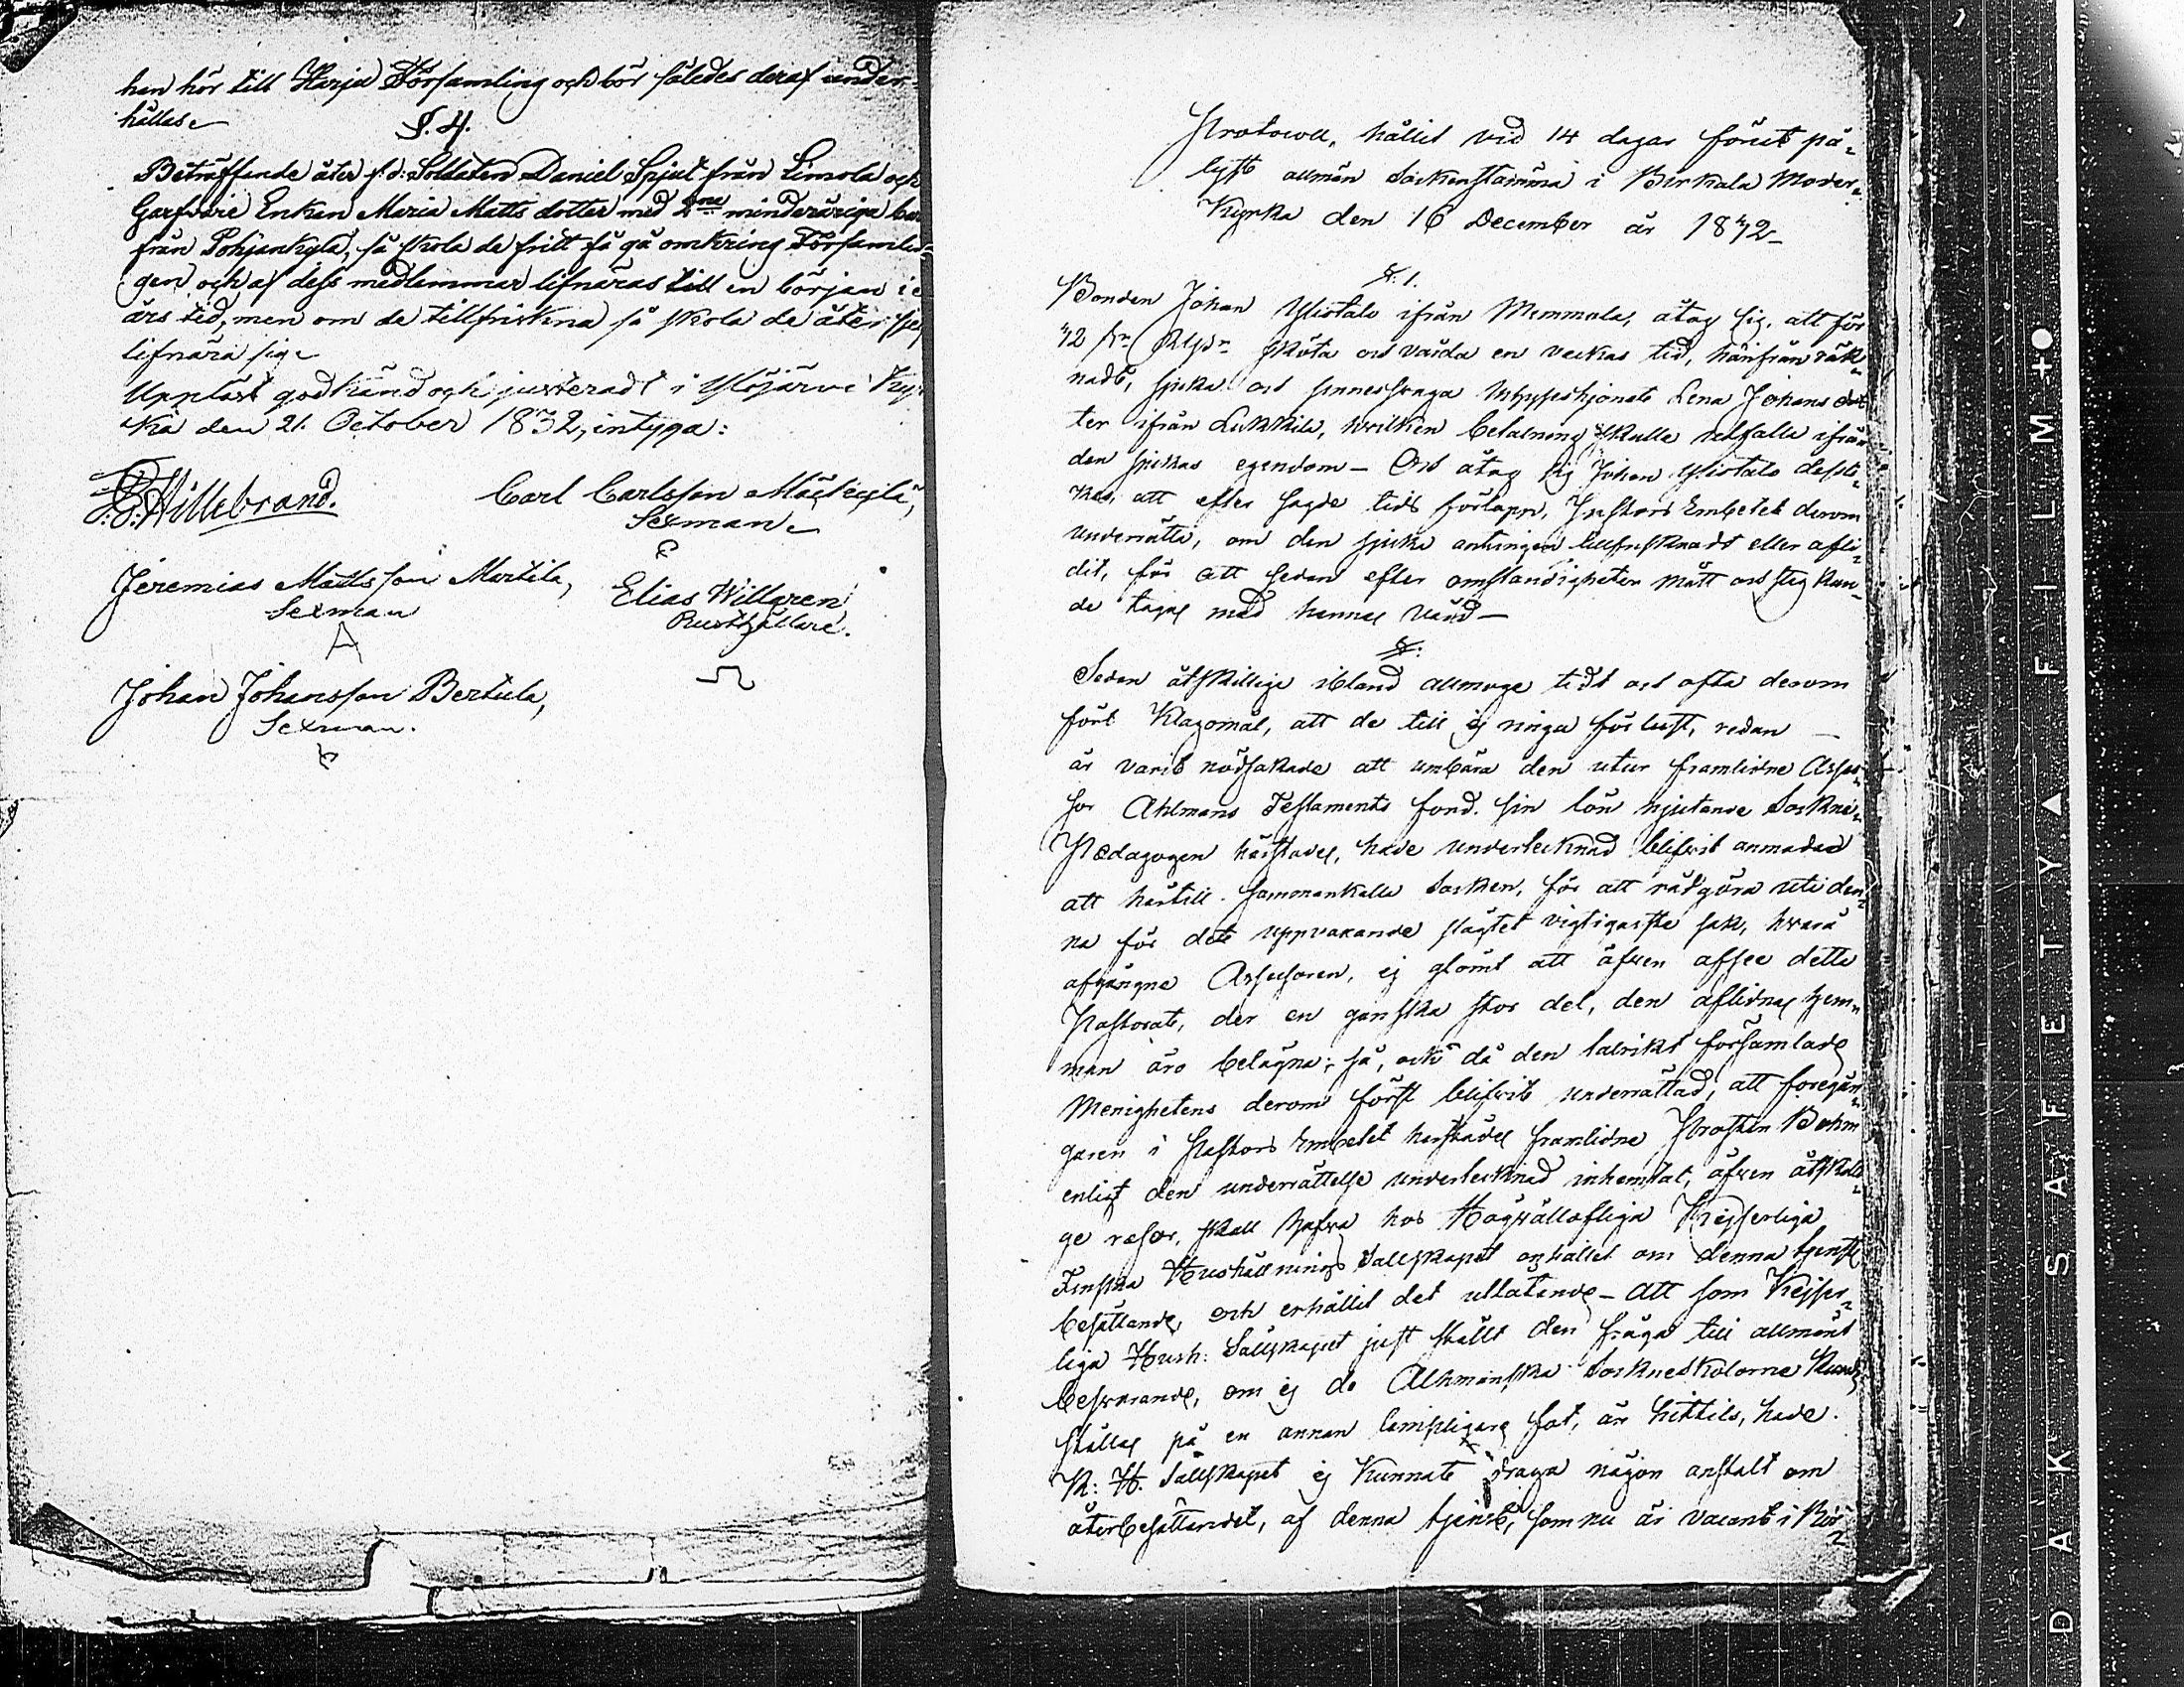 hen hör till Harja Församling och bör således deraf under-
hållas.
§. 4.
Beträffande åter f. d: Soldaten Daniel Spjut från Limola och
Garfvare Enkan Maria Matts dotter med 2ne minderåriga
från Pohjankylä, så skola de fritt få gå omkring Församlin-
gen och af dess medlemmar lifnäras till en början i
års tid, men om de tillfriskna så skola de åter
lifnära sig.
Uppläst godkänd och justeradt i Ylöjärvi Kyr-
ka den 21. October 1832, intyga:
Hillebrand.
Carl Carlsson Mäkikylä,
Sexman.
Jeremias Mattsson Mertila,
Sexman
Elias Willgren
Rusthållare.
Johan Johansson Bertula,
Sexman.
Protocoll, hållit vid 14 dagar förut på-
lyst allmän Sockenstämma i Birkala Moder-
Kyrka den 16 December år 1832-
§. 1.
Bonden Johan Ylistalo ifrån Memmala, åtog sig, att för
sköta och vårda en veckas tid, härifrån räk-
nadt, sjuka och sinnessvaga Lena Johans dot
ter ifrån Lukkila, hvilken betalning skulle utfalla ifrån
den sjukas egendom - Och åtog sig Johan Ylistalo desslik-
kas, att efter sagde tids förlopp, Pastors Embetet derom
underrätta, om den sjuka antingen tillfrisknadt eller afli-
dit, för att sedan efter omständigheten mått och steg kun-
de tagas med hennes vård -
§:
Sedan åtskillige ibland allmoge tidt och ofta derom
fört Klagomål, att de till ej ringa förlust, redan
år varit nödsakade att umbära den utur framlidne Asses-
sor Ahlmans Testaments fond. sin lön njutande Sockne-
Pædagogen härstädes, hade undertecknad blifvit anmodad
att härtill sammankalla Socken, för att rådgöra uti den-
na för det uppvaxande slägtet vigtigaste sak, hvarå
afgångne Assessoren, ej glömt att äfven afse detta
Pastorat, der en ganska stor del, den aflidnes hem-
man äro belägna; så, och då den talrikt församlade
Menighetens derom först blifvit underrättad, att föregån-
garen i Pastors Embetet härstädes framlidne Prosten Bohm
enligt den underrättelse undertecknad inhemtat, äfven åtskilli-
ge resor, skall hafva hos Högvällofliga Kejserliga
Finska Hushållnings Sällskapet anhållit om denna tjenst
besättande, och erhållit det utlåtande - att som Kejser-
liga Hush: Sällskapet just ställt den frågar till allmänt
besvarande, om ej de Ahlmanska Sockneskolorne kunde
ställas på en annan lämpligare fot, än hittils, hade
K: H. Sällskapet ej kunnat draga någon anstalt om
återbesättandet, af denna tjenst, som nu är vacant i Bir-
DAK SAFETY FILM